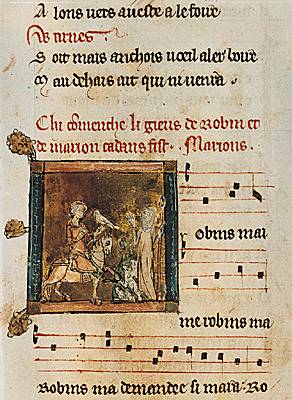 A lons uers aueste a le foire
Warnes
S oit mais anchois uoeil aler boire
M au dehais ait qui ni uenra
Chi comenche li gieus de Robin et
de marion cadans fist. Marions.
Robins mai
me robins ma
Robins ma demandee si mara. Ro